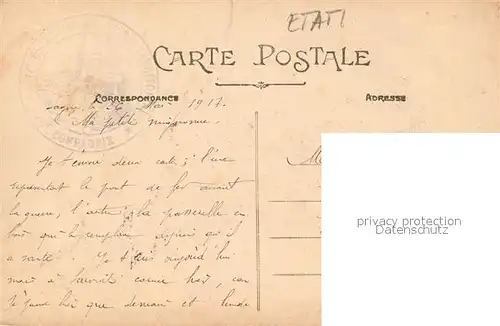 ETATI
CARTE POSTALE
CORRESPONDANCE
ADRESSE
le 26 Mai 1917.
Ma petite mignonne.
Je t'envoie deux cartes; l'une
représentant le pont de fer avant
la guerre, l'autre la passerelle en
bois qui le remplace depuis qu'il
a sauté. Je t'écris aujourd'hui
mais à hier, car
que demain et lundi
M
privacy protection
Datenschutz
COMPAGNIE